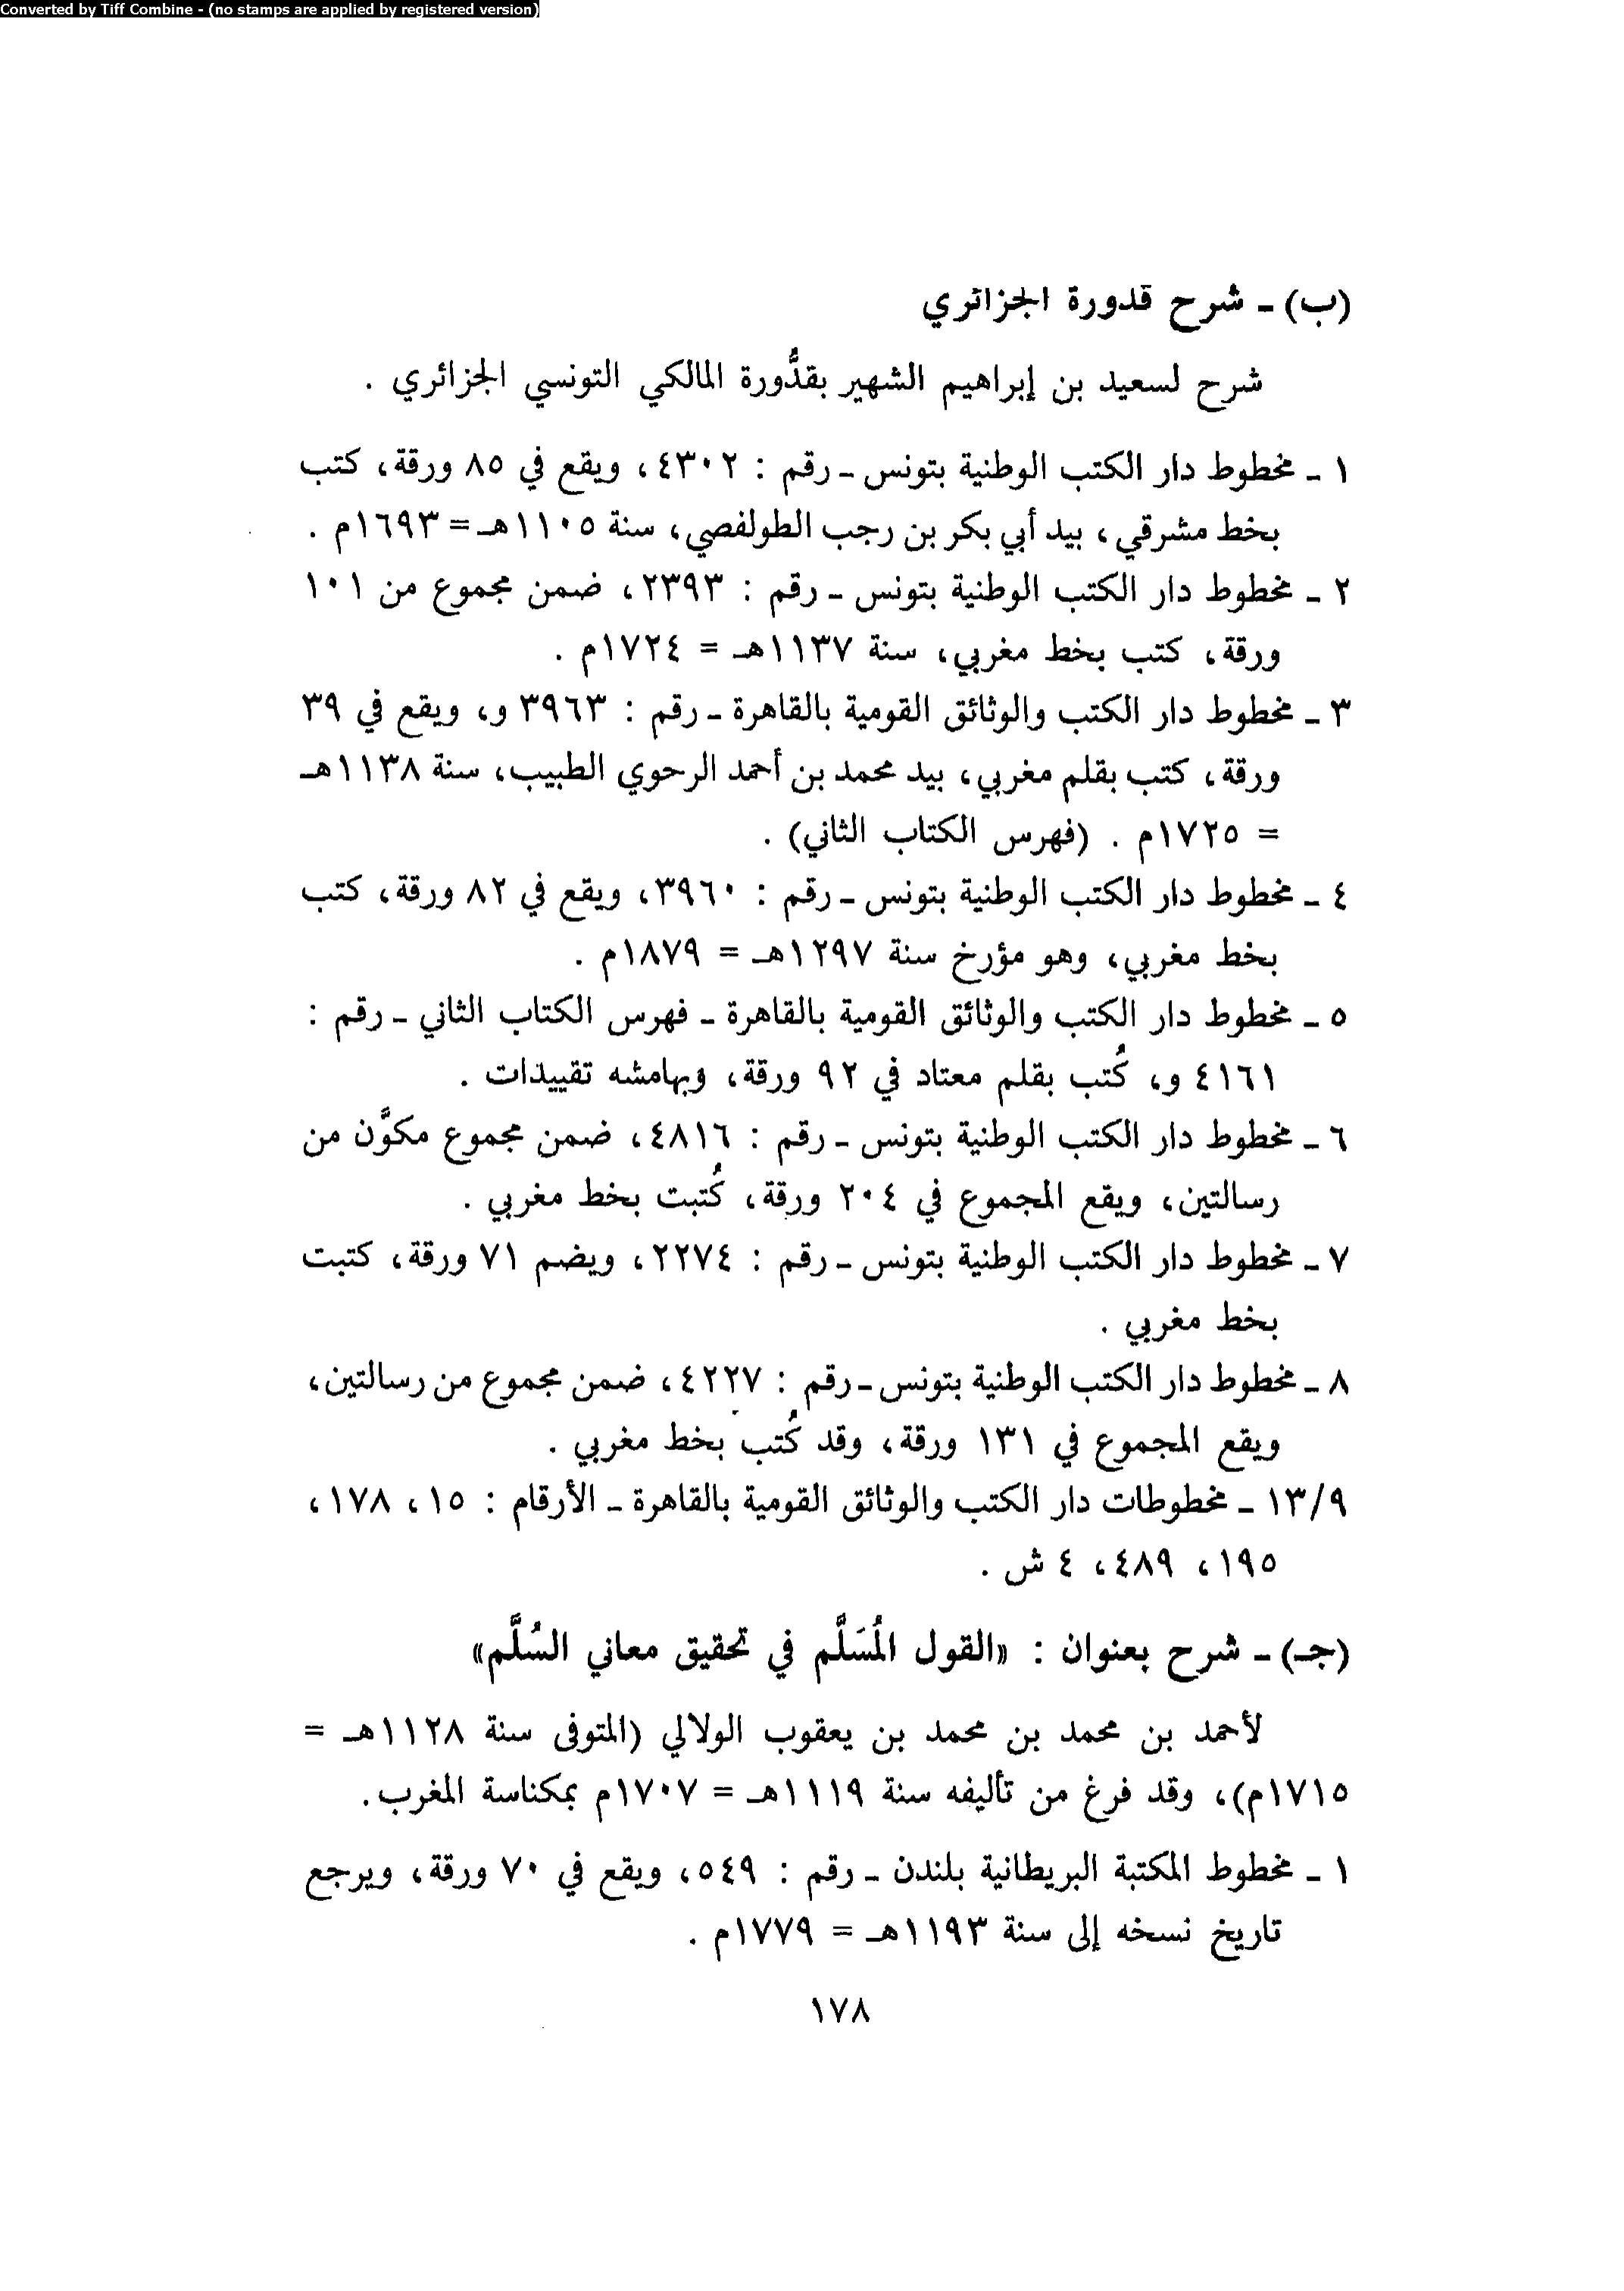 Converted by Tiff Combine - (no stamps are applied by registered version)
(ب) ـ شرح قدورة الجزائري
شرح لسعيد بن إبراهيم الشهير بقدُّورة المالكي التونسي الجزائري .
١ ـ مخطوط دار الكتب الوطنية بتونس ـ رقم : ٤٣٠٢، ويقع في ٨٥ ورقة، كتب
بخط مشرقي، بيد أبي بكر بن رجب الطولفصي، سنة ١١٠٥هـ = ١٦٩٣م .
٢ ـ مخطوط دار الكتب الوطنية بتونس ـ رقم : ٢٣٩٣، ضمن مجموع من ١٠١
ورقة، كتب بخط مغربي، سنة ١١٣٧هـ = ١٧٢٤م .
٣ ـ مخطوط دار الكتب والوثائق القومية بالقاهرة ـ رقم : ٣٩٦٣ و، ويقع في ٣٩
ورقة، كتب بقلم مغربي، بيد محمد بن أحمد الرحوي الطبيب، سنة ١١٣٨هـ
= ١٧٢٥م . (فهرس الكتاب الثاني) .
٤ ـ مخطوط دار الكتب الوطنية بتونس ـ رقم : ٣٩٦٠، ويقع في ٨٢ ورقة، كتب
بخط مغربي، وهو مؤرخ سنة ١٢٩٧هـ = ١٨٧٩م .
٥ ـ مخطوط دار الكتب والوثائق القومية بالقاهرة ـ فهرس الكتاب الثاني ـ رقم :
٤١٦١ و، كُتب بقلم معتاد في ٩٢ ورقة، وبهامشه تقييدات .
٦ ـ مخطوط دار الكتب الوطنية بتونس ـ رقم : ٤٨١٦، ضمن مجموع مكوَّن من
رسالتين، ويقع المجموع في ٢٠٤ ورقة، كُتبت بخط مغربي .
٧ ـ مخطوط دار الكتب الوطنية بتونس ـ رقم : ٢٢٧٤، ويضم ٧١ ورقة، كتبت
بخط مغربي .
٨ ـ مخطوط دار الكتب الوطنية بتونس ـ رقم : ٤٢٢٧، ضمن مجموع من رسالتين،
ويقع المجموع في ١٣١ ورقة، وقد كُتب بخط مغربي .
١٣/٩ ـ مخطوطات دار الكتب والوثائق القومية بالقاهرة ـ الأرقام : ١٥، ١٧٨،
١٩٥، ٤٨٩، ٤ ش .
(جـ) ـ شرح بعنوان : «القول المُسَلَّم في تحقيق معاني السُلَّم»
لأحمد بن محمد بن محمد بن يعقوب الولالي (المتوفى سنة ١١٢٨هـ =
١٧١٥م)، وقد فرغ من تأليفه سنة ١١١٩هـ = ١٧٠٧م بمكناسة المغرب.
١ ـ مخطوط المكتبة البريطانية بلندن ـ رقم : ٥٤٩، ويقع في ٧٠ ورقة، ويرجع
تاريخ نسخه إلى سنة ١١٩٣هـ = ١٧٧٩م .
١٧٨